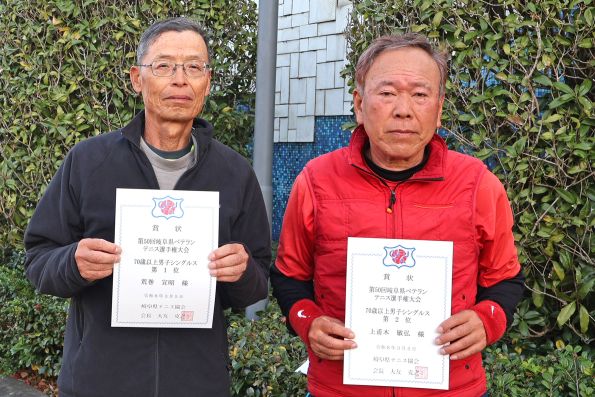 賞 状
第50回岐阜県ベテラン
テニス選手権大会
70歳以上男子シングルス
第 1 位
荒巻 宜昭 様
岐阜県テニス協会
会長 大友 克之
賞 状
第50回岐阜県ベテラン
テニス選手権大会
70歳以上男子シングルス
第 2 位
上垂木 敏弘 様
岐阜県テニス協会
会長 大友